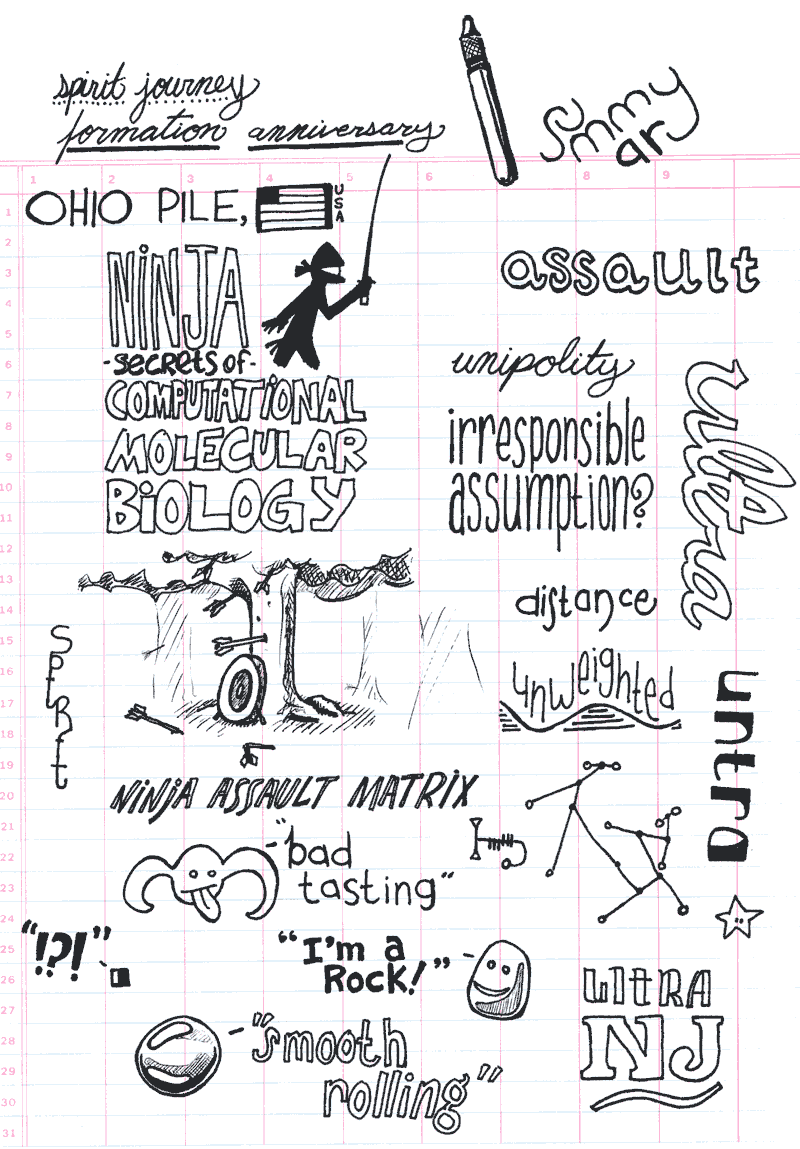 spirit journey
formation anniversary
summary
1 2 3 4 5 6 7 8 9
OHIO PILE,
USA
NiNJA
-secrets of-
COMPUTATiONAL
MOLECULAR
BiOLOGY
assault
unipolity
irresponsible
assumption?
ultra
distance
unweighted
SPiRit
untra
NiNjA ASSAULT MATRIX
"bad
tasting"
"!?!"
"I'm a
Rock!"
"smooth
rolling"
UltRA
NJ
1
2
3
4
5
6
7
8
9
10
11
12
13
14
15
16
17
18
19
20
21
22
23
24
25
26
27
28
29
30
31